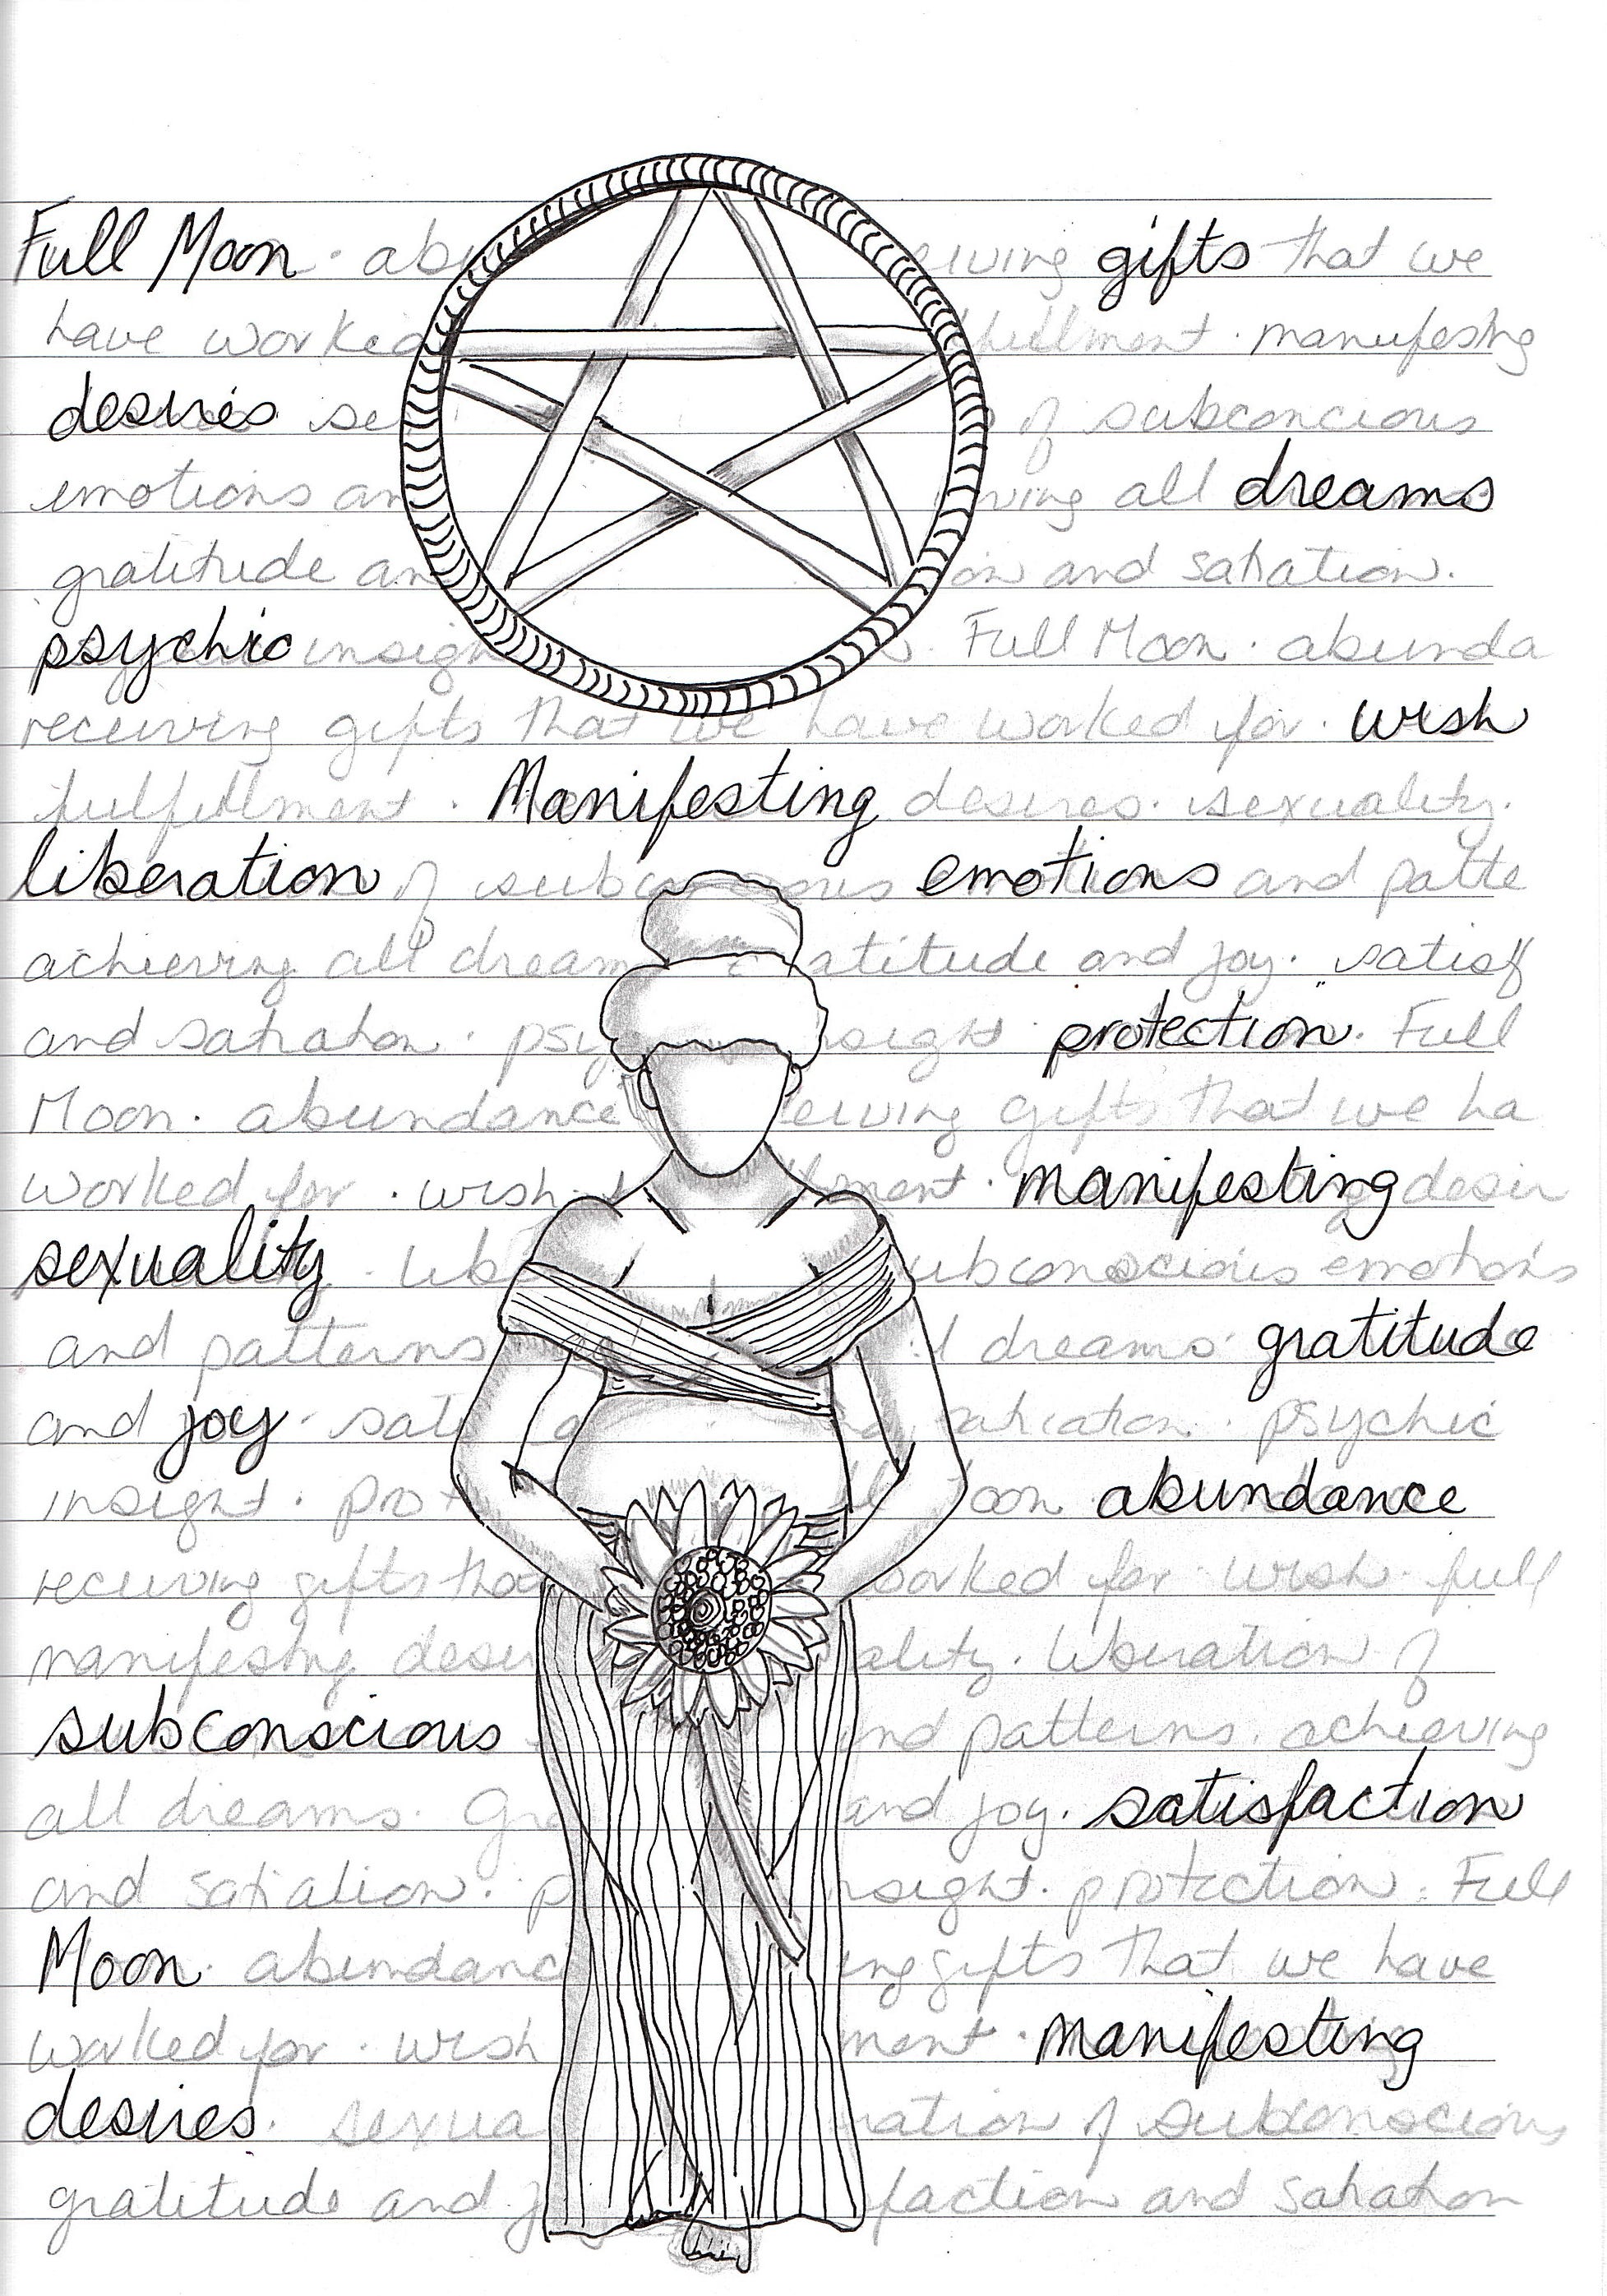 Full Moon · abu eiving gifts that we
have worked fulfillment · manifestng
desires se of subconcious
emotions an ving all dreams
gratitude an on and satiation.
psychic insigh Full Moon · abunda
receiving gifts that we have worked for · wish
fulfillment · Manifesting desires. sexuality.
liberation of subconscious emotions and patte
achieving all dream atitude and joy. satisf
and satiation · psy nsight · protection. Full
Moon. abundance eiving gifts that we ha
worked for · wish. lment · manifesting desir
sexuality · lib ubconscious emotions
and patterns l dreams gratitude
and joy. sat satiation. psychic
insight. prot oon abundance
receiving gifts tha worked for · wish · full
manifestng desir ality. liberation of
subconscious nd patterns. achieving
all dreams. Gra and joy. satisfaction
and satiation. p nsight. protection. Full
Moon. abundanc ing gifts that we have
worked for · wish ment · manifesting
desires. sexua ration of subconscious
gratitude and j faction and satiation